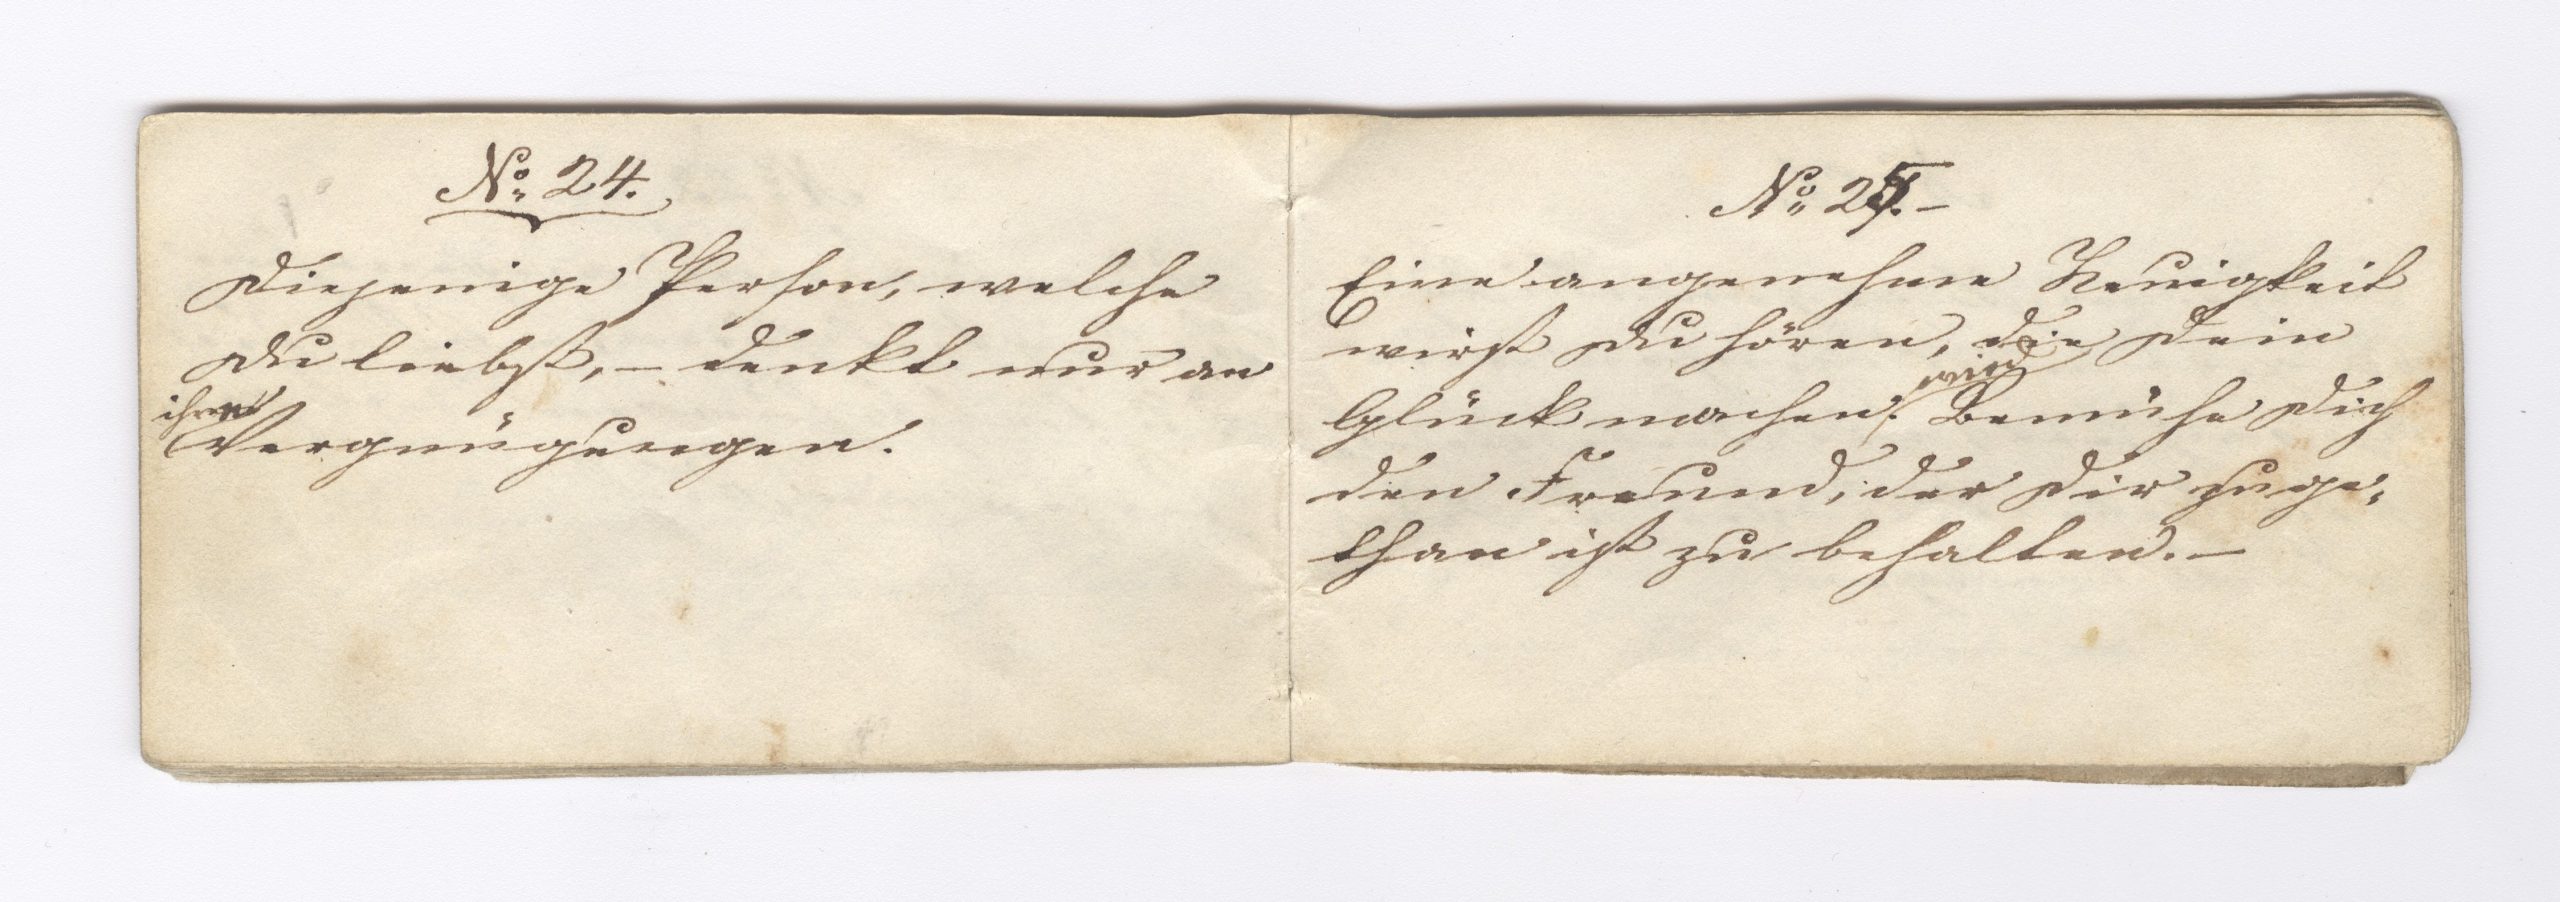 No. 24.
Diejenige Person, welche
Du liebst, – denkt nur an
ihre
Vergnügungen.
No. 25. –
Eine angenehme Neuigkeit
wirst Du hören, die Dein
wird
Glück machen. Bemühe Dich
den Freund, der Dir zuge-
than ist zu behalten. –